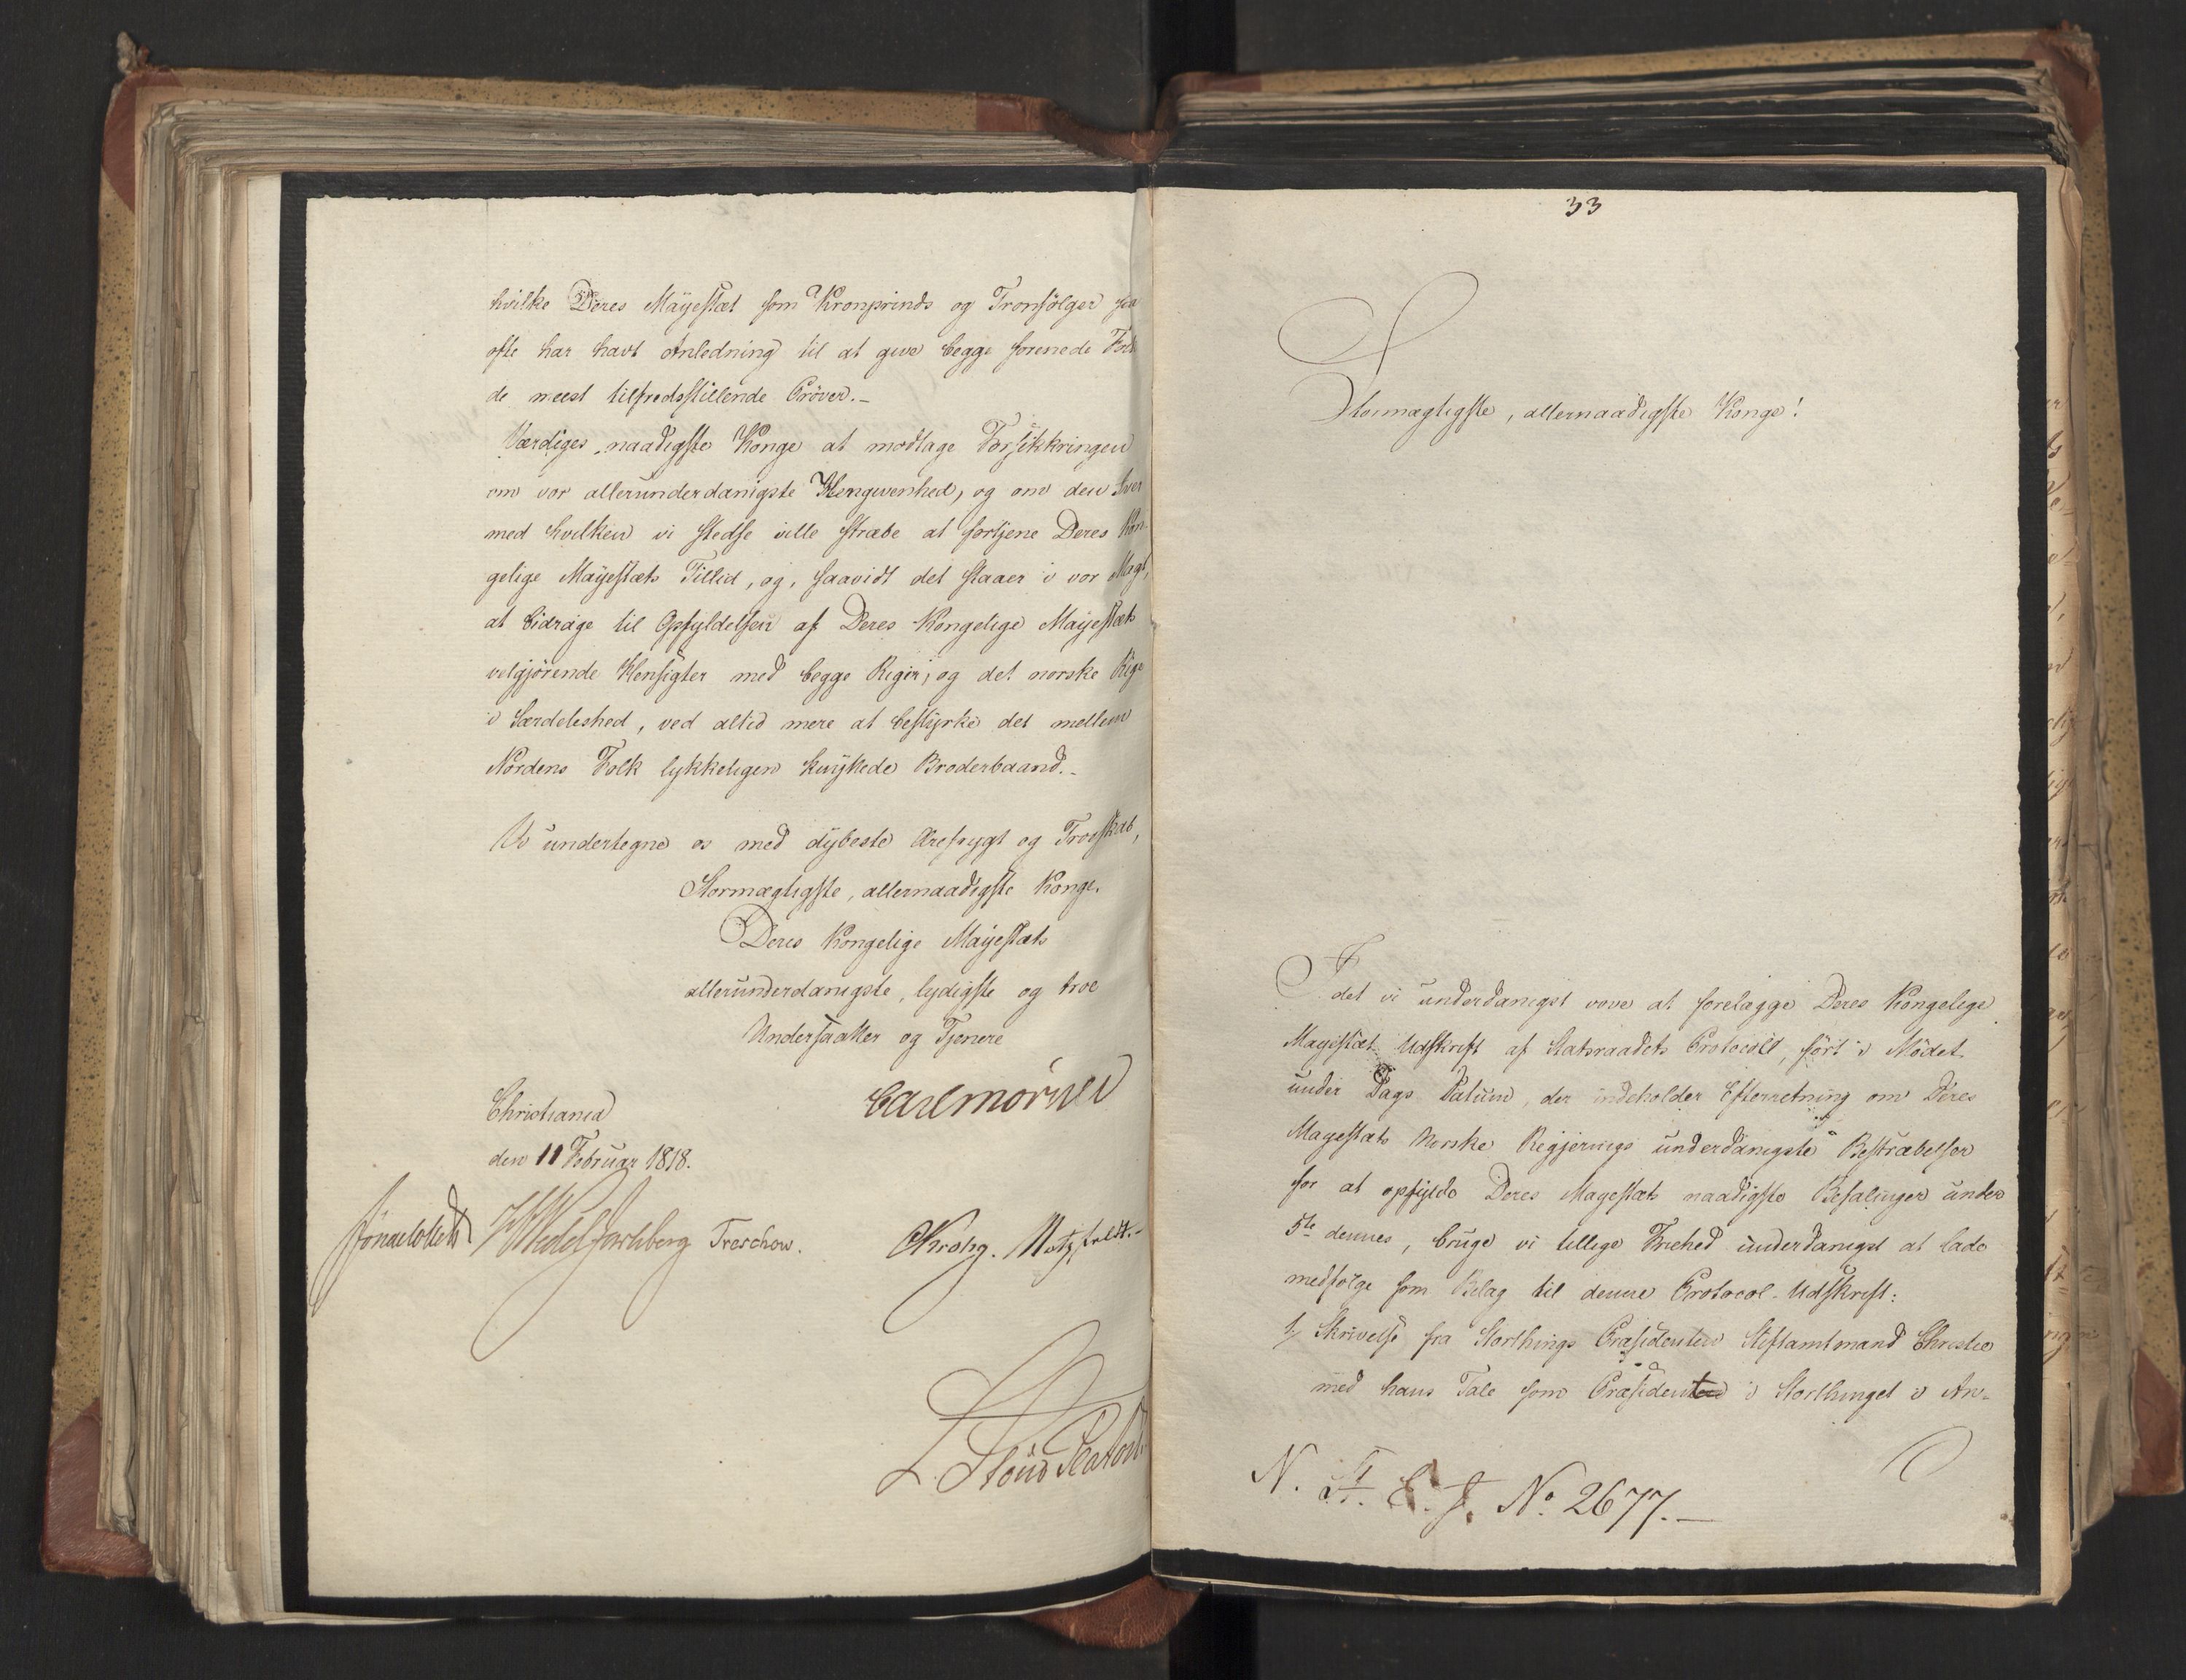 hvilke Deres Mayestæt som Kronprinds og Tronfölger saa
ofte har havt Anledning til at give begge forenede Folk
de meest tilfredsstillende Pröver.-
Værdiges, naadigste Konge at modtage Forsikkringen
om vor allerunderdanigste Hengivenhed, og om den Iver
med hvilken vi stedse ville stræbe at fortjene Deres Kon-
gelige Mayestæts Tillid, og, saavidt det staaer i vor Magt,
at bidrage til Opfyldelsen af Deres Kongelige Mayestæts
velgjörende Hensigter med begge Riger, og det norske Rige
i Særdeleshed, ved altid mere at bestyrke det mellem
Nordens Folk lykkeligen knyttede Broderbaand.-
Vi undertegne os med dybeste Ærefrygt og Troeskab,
Stormægtigste, allernaadigste Konge.
Deres Kongelige Mayestæts
allerunderdanigste, lydigste og troe
Undersaatter og Tjenere
Carl Mörner
Christiania
den 11 Februar 1818.
Jonas Collett HWedel Jarlsberg Treschow. CKrohg. Motzfeldt.-
L. Stoud Platou
33
Stormægtigste, allernaadigste Konge!
I det vi underdanigst vove at forelægge Deres Kongelige
Mayestæt Udskrift af Statsraadets Protocoll, fört i Mödet
under Dags Datum, der indeholder Efterretning om Deres
Mayestæts Norske Regjerings underdanigste Bestræbelser
for at opfylde Deres Mayestæts naadigste Befalinger under
5te dennes, bruge vi tillige Friehed underdanigst at lade
medfølge som Bilag til denne Protocol-Udskrift:
1, Skrivelse fra Storthings Præsidenten Stiftamtmand Christie
med hans Tale som Præsident i Storthinget i An-
N. St. E. J. No. 2677.-